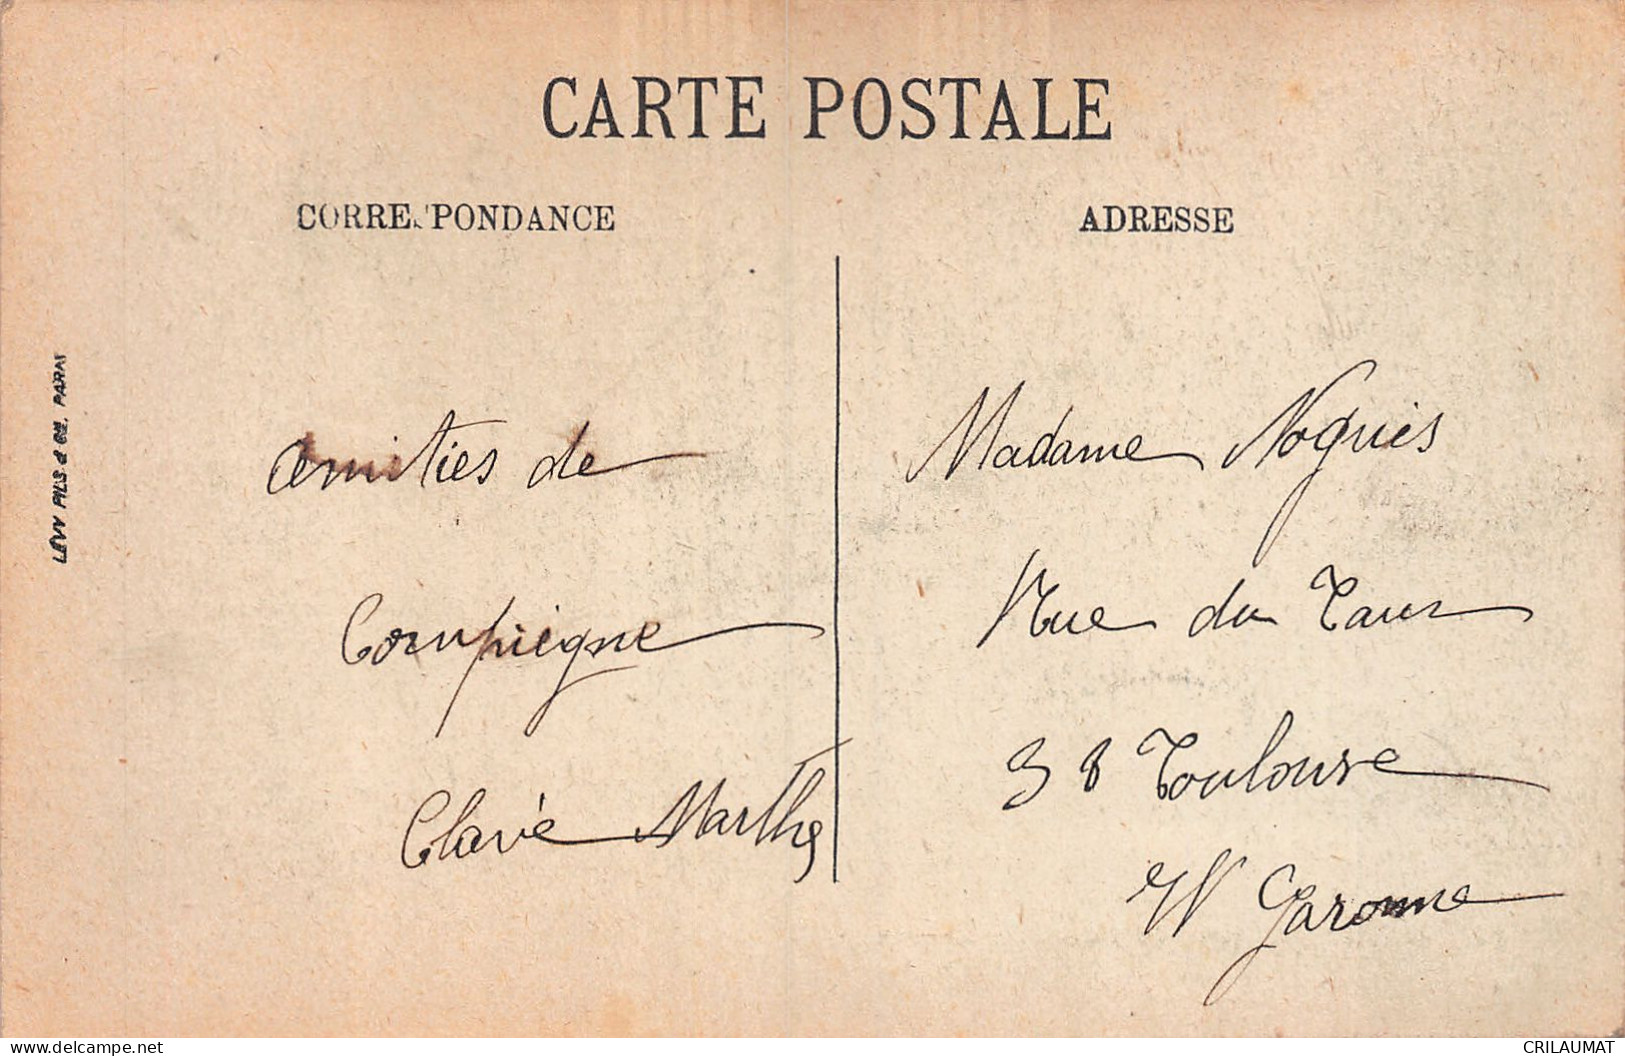 CARTE POSTALE
CORRESPONDANCE
ADRESSE
LÉVY FILS & Cie, PARIS
amitiés de
Compiègne
Clavé Marthe
Madame Noguiès
Rue du Taur
38 Toulouse
Hte Garonne
www.delcampe.net
CRILAUMAT